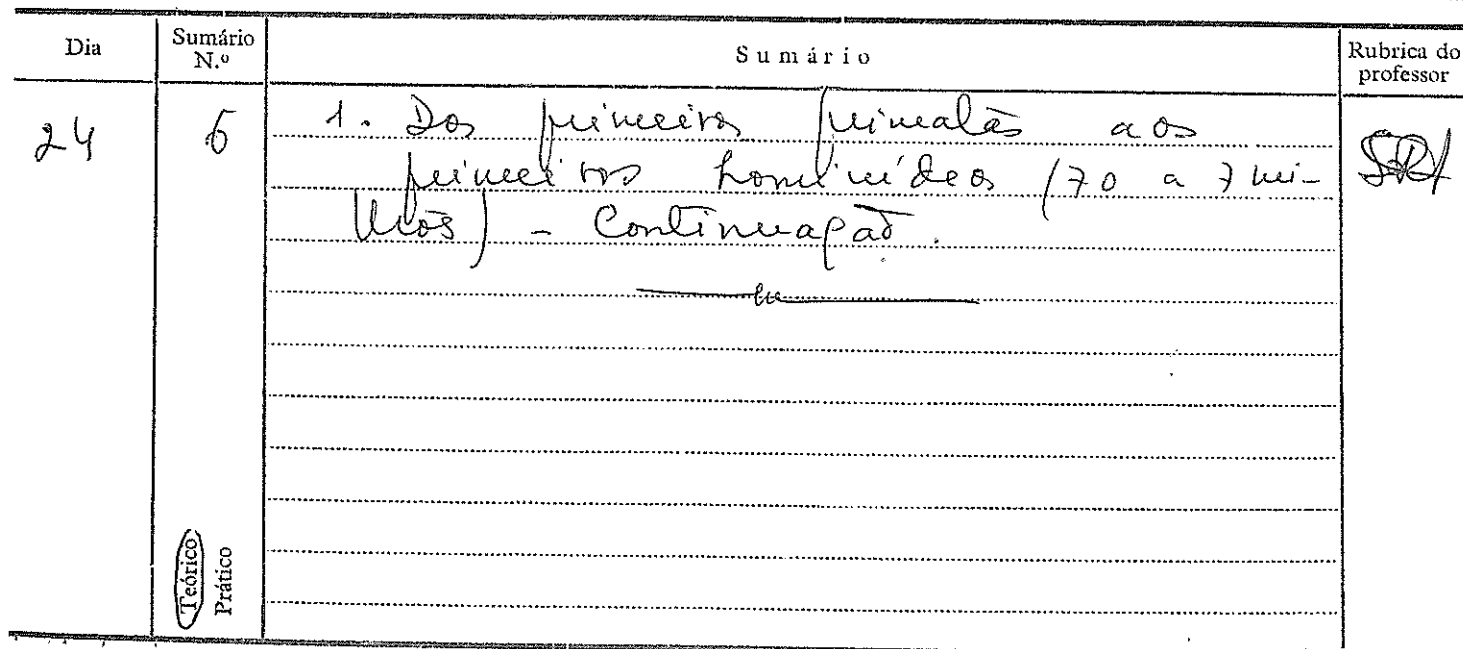 Dia
Sumário N.º
Sumário
Rubrica do professor
24
6
1. Dos primeiros primatas aos
primeiros hominídeos (70 a 7 mi-
lhões) - Continuação.
Teórico
Prático